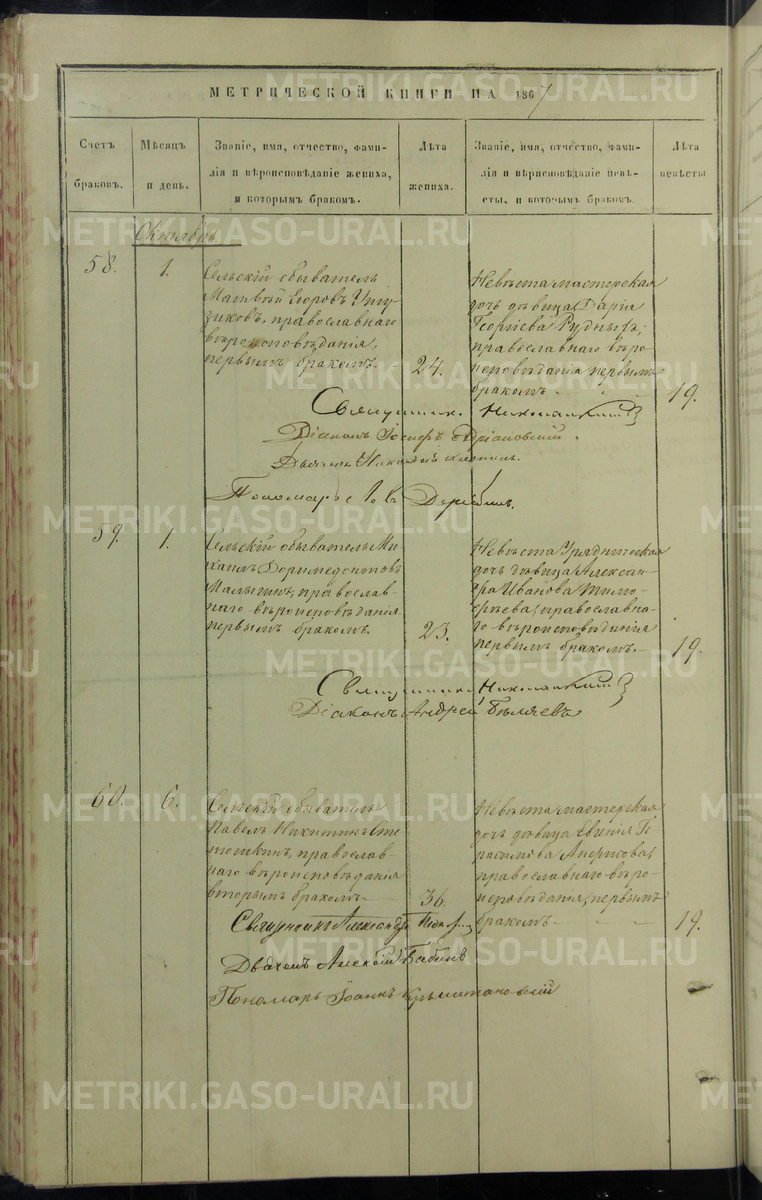 МЕТРИЧЕСКОЙ КНИГИ НА 1867
Счетъ браковъ.
Мѣсяцъ и день.
Званіе, имя, отчество, фами-
лія и вѣроисповѣданіе жениха,
и которымъ бракомъ.
Лѣта жениха.
Званіе, имя, отчество, фами-
лія и вѣрисповѣданіе невѣ-
сты, и которымъ бракомъ.
Лѣта невѣсты
Октябрь
58.
1.
Сельскій обыватель
Матвѣй Егоровъ
православнаго
вѣроисповѣданія,
первымъ бракомъ.
24.
Невѣста мастерская
дочь дѣвица Дарія
Георгіева Рудныхъ,
православнаго вѣро-
исповѣданія первымъ
бракомъ
19.
Священникъ
Діаконъ Іосифъ
Дьячекъ Николай
Пономарь Іовъ Дерябинъ.
59.
1.
Сельскій обыватель Ми-
хаилъ Доримедонтовъ
Малыгинъ, православ-
наго вѣроисповѣданія
первымъ бракомъ.
23.
Невѣста Урядническая
дочь дѣвица Алексан-
дра Иванова Тимо-
феева, православна-
го вѣроисповѣданія
первымъ бракомъ.
19.
Священникъ
Діаконъ Андрей Бѣляевъ
60.
6.
Сельскій обыватель
Павелъ Никитинъ
православ-
наго вѣроисповѣданія
вторымъ бракомъ
36.
Невѣста мастерская
дочь дѣвица Евгенія Ге-
расимова
православнаго вѣро-
исповѣданія, первымъ
бракомъ
19.
Священникъ Александръ
Дьячекъ Алексій Бабинъ
Пономарь Іоаннъ
METRIKI.GASO-URAL.RU